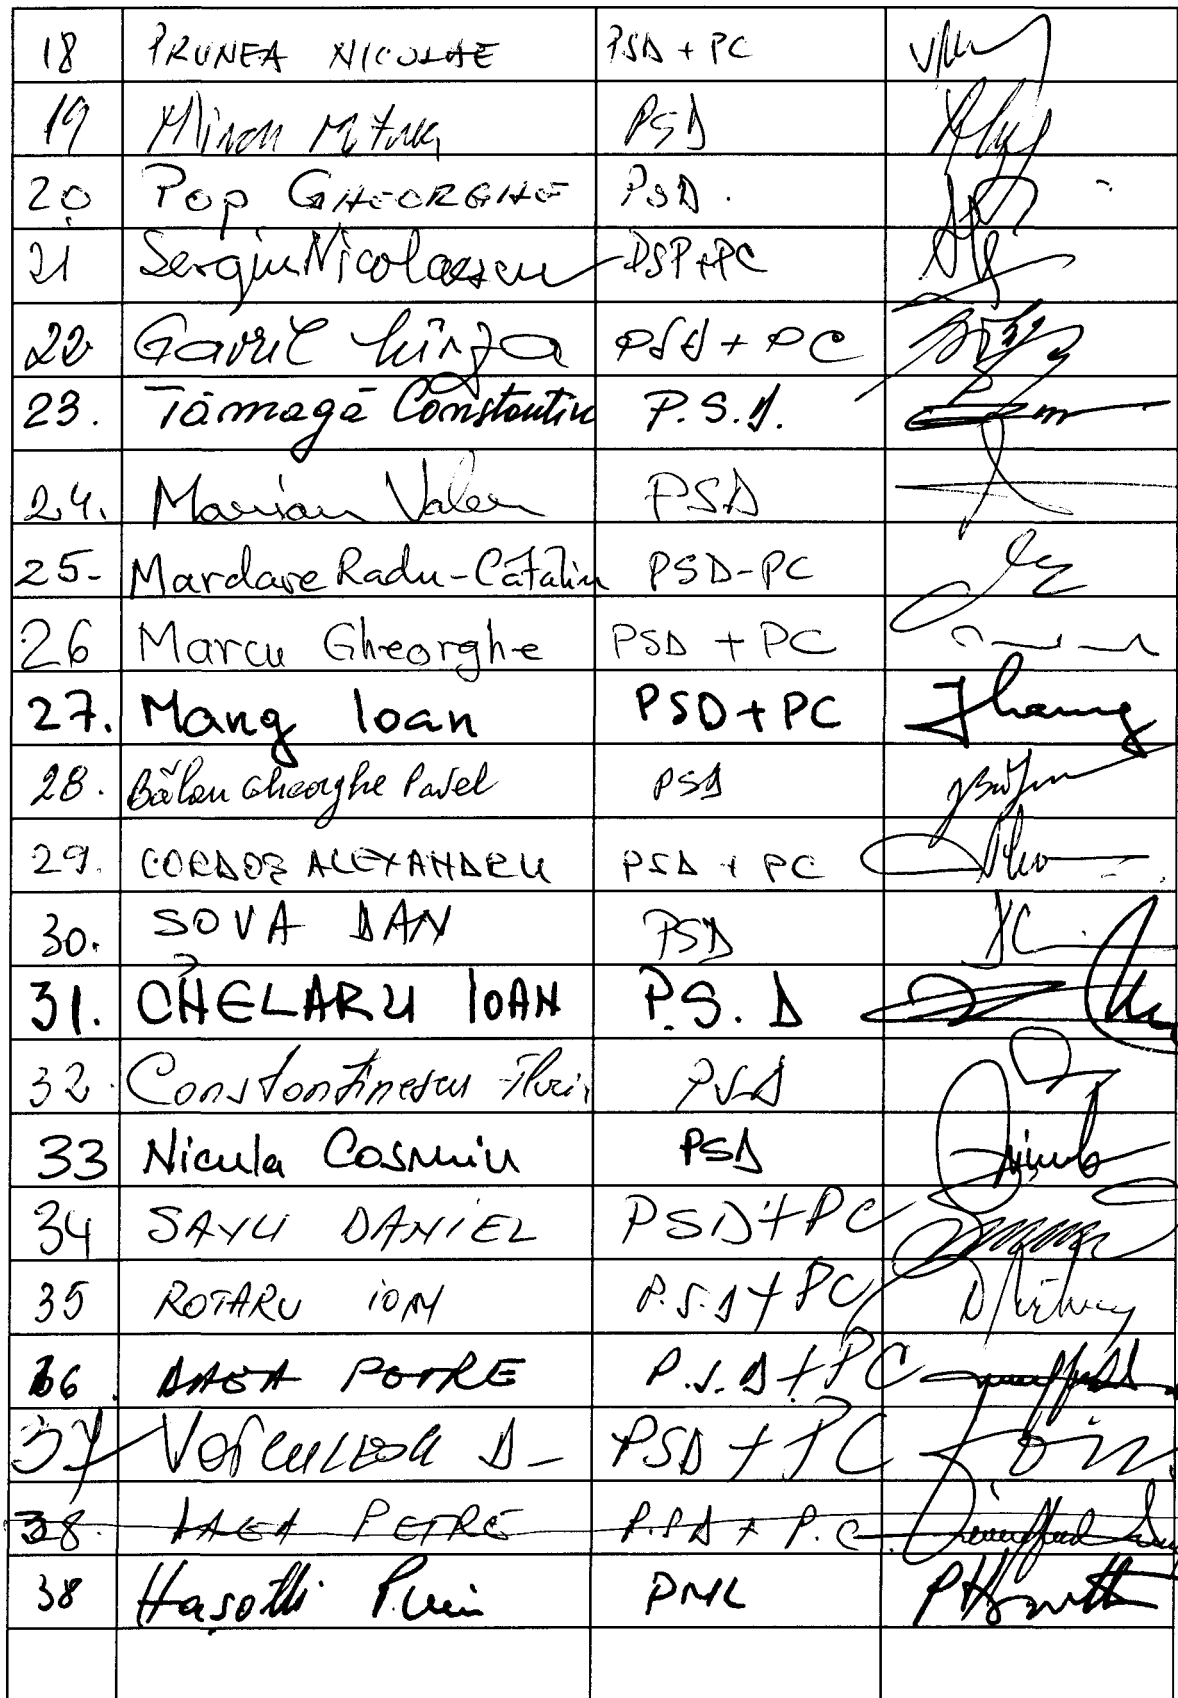 18 PRUNEA NICOLAE PSD + PC
19 Miron PSD
20 POP GHEORGHE PSD.
21 Sergiu Nicolaescu PSD+PC
22 Gavril Mîrza PSD + PC
23. Tămagă Constantin P.S.D.
24. Marian Valer PSD
25- Mardare Radu-Cătălin PSD-PC
26 Marcu Gheorghe PSD + PC
27. Mang Ioan PSD+PC
28. Bălan Gheorghe Pavel PSD
29. CORDOȘ ALEXANDRU PSD + PC
30. ȘOVA DAN PSD
31. CHELARU IOAN P.S.D
32. Constantinescu Florin PSD
33 Nicula Cosmin PSD
34 SAVU DANIEL PSD+PC
35 ROTARU ION P.S.D + PC
36. DAEA PETRE P.S.D + PC
37 Voiculescu D- PSD + PC
38. DAEA PETRE P.S.D + P.C.
38 Hașotti Puiu PNL